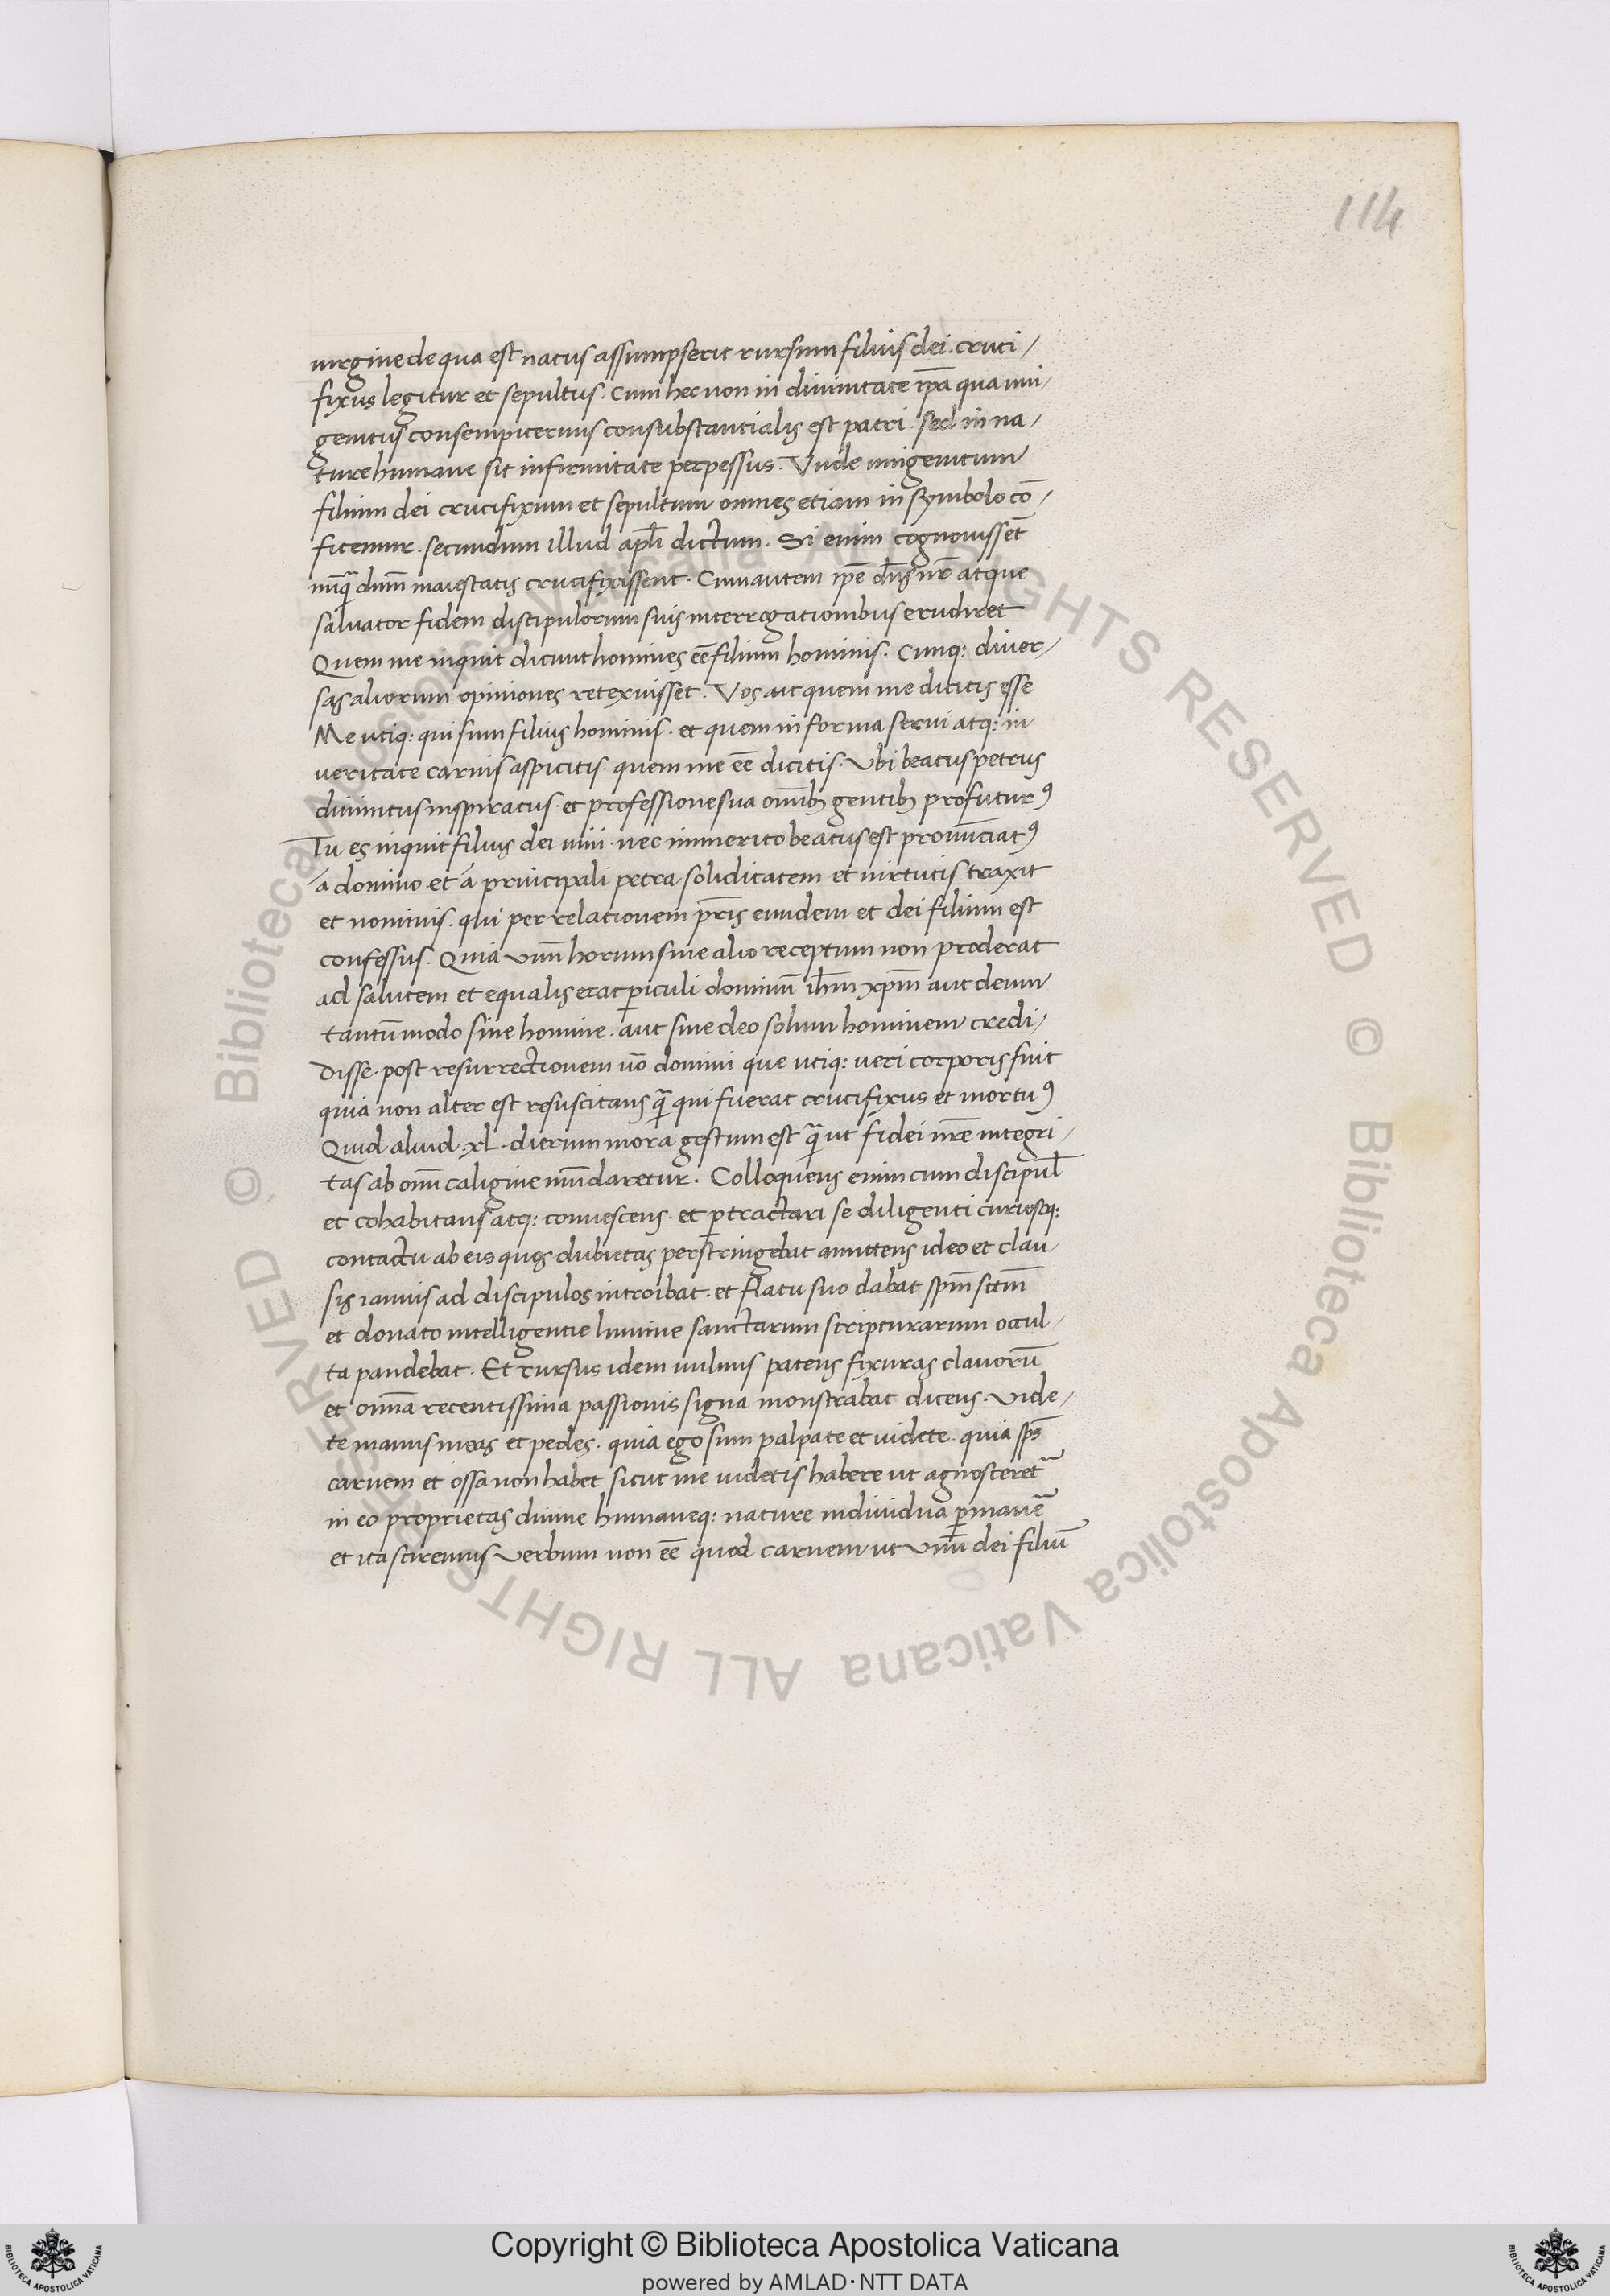 114
uirgine de qua est natus assumpserit rursum filius dei. cruci/
fixus legitur et sepultus. Cum hec non in diuinitate ip̄a qua uni/
genitus consempiternus consubstantialis est patri. sed in na/
ture humane sit infirmitate perpessus. Vnde unigenitum
filium dei crucifixum et sepultum omnes etiam in symbolo cō/
fitemur. secundum illud apl̄i dictum. Si enim cognouissēt
nūq̄ dn̄m maiestatis crucifixissent. Cum autem ip̄e dn̄s nr̄ atque
saluator fidem discipulorum suis interrogationibus erudiret
Quem me inquit dicunt homines eē filium hominis. Cunq: diuer/
sas aliorum opiniones retexuisset. Vos ait quem me dicitis esse
Me utiq: qui sum filius hominis. et quem in forma serui atq: in
ueritate carnis aspicitis. quem me eē dicitis. Vbi beatus petrus
diuinitus inspiratus. et professione sua om̄ibꝫ gentibꝫ profuturꝰ
Tu es inquit filius dei uiui. nec immerito beatus est pronūciatꝰ
á domino et á principali petra soliditatem et uirtutis traxit
et nominis. qui per relationem pr̄is eundem et dei filium est
confessus. Quia vnū horum sine alio receptum non proderat
ad salutem et equalis erat ꝑiculi dominū ihm̄ xp̄m aut deum
tantūmodo sine homine. aut sine deo solum hominem credi/
disse. post resurrectionem uō domini que utiq: ueri corporis fuit
quia non alter est resuscitans q̄ qui fuerat crucifixus et mortuꝰ
Quid aliud .xl. dierum mora gestum est q̄ ut fidei nr̄e integri/
tas ab om̄i caligine mūdaretur. Colloquens enim cum discipul̄
et cohabitans atq: conuescens. et ꝑtractari se diligenti curiosoq:
contactu ab eis quos dubietas perstringebat amittens ideo et clau/
sis ianuis ad discipulos introibat. et flatu suo dabat sp̄m sc̄tm
et donato intelligentie lumine sanctarum scripturarum occul/
ta pandebat. Et rursus idem uulnus patens fixuras clauorū
et om̄a recentissima passionis signa monstrabat dicens. Vide/
te manus meas et pedes. quia ego sum palpate et uidete. quia sp̄s
carnem et ossa non habet sicut me uidetis habere ut agnosceret᷑
in eo proprietas diuine humaneq: nature indiuidua ꝑmanē
et ita sciremus verbum non eē quod carnem ut vnū dei filiū
© Biblioteca Apostolica Vaticana ALL RIGHTS RESERVED © Biblioteca Apostolica Vaticana ALL RIGHTS RESERVED
Copyright © Biblioteca Apostolica Vaticana
powered by AMLAD·NTT DATA
BIBLIOTECA APOSTOLICA VATICANA
BIBLIOTECA APOSTOLICA VATICANA